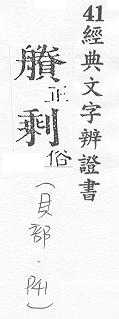 41經典文字辨證書
賸正
剩俗
(貝部．P41)